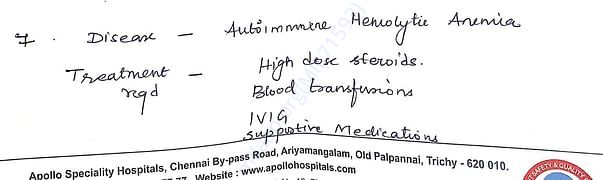 7. Disease - Autoimmune Hemolytic Anemia
Treatment rqd - High dose steroids.
Blood transfusions
IVIG
Supportive Medications
Apollo Speciality Hospitals, Chennai By-pass Road, Ariyamangalam, Old Palpannai, Trichy - 620 010.
Website : www.apollohospitals.com